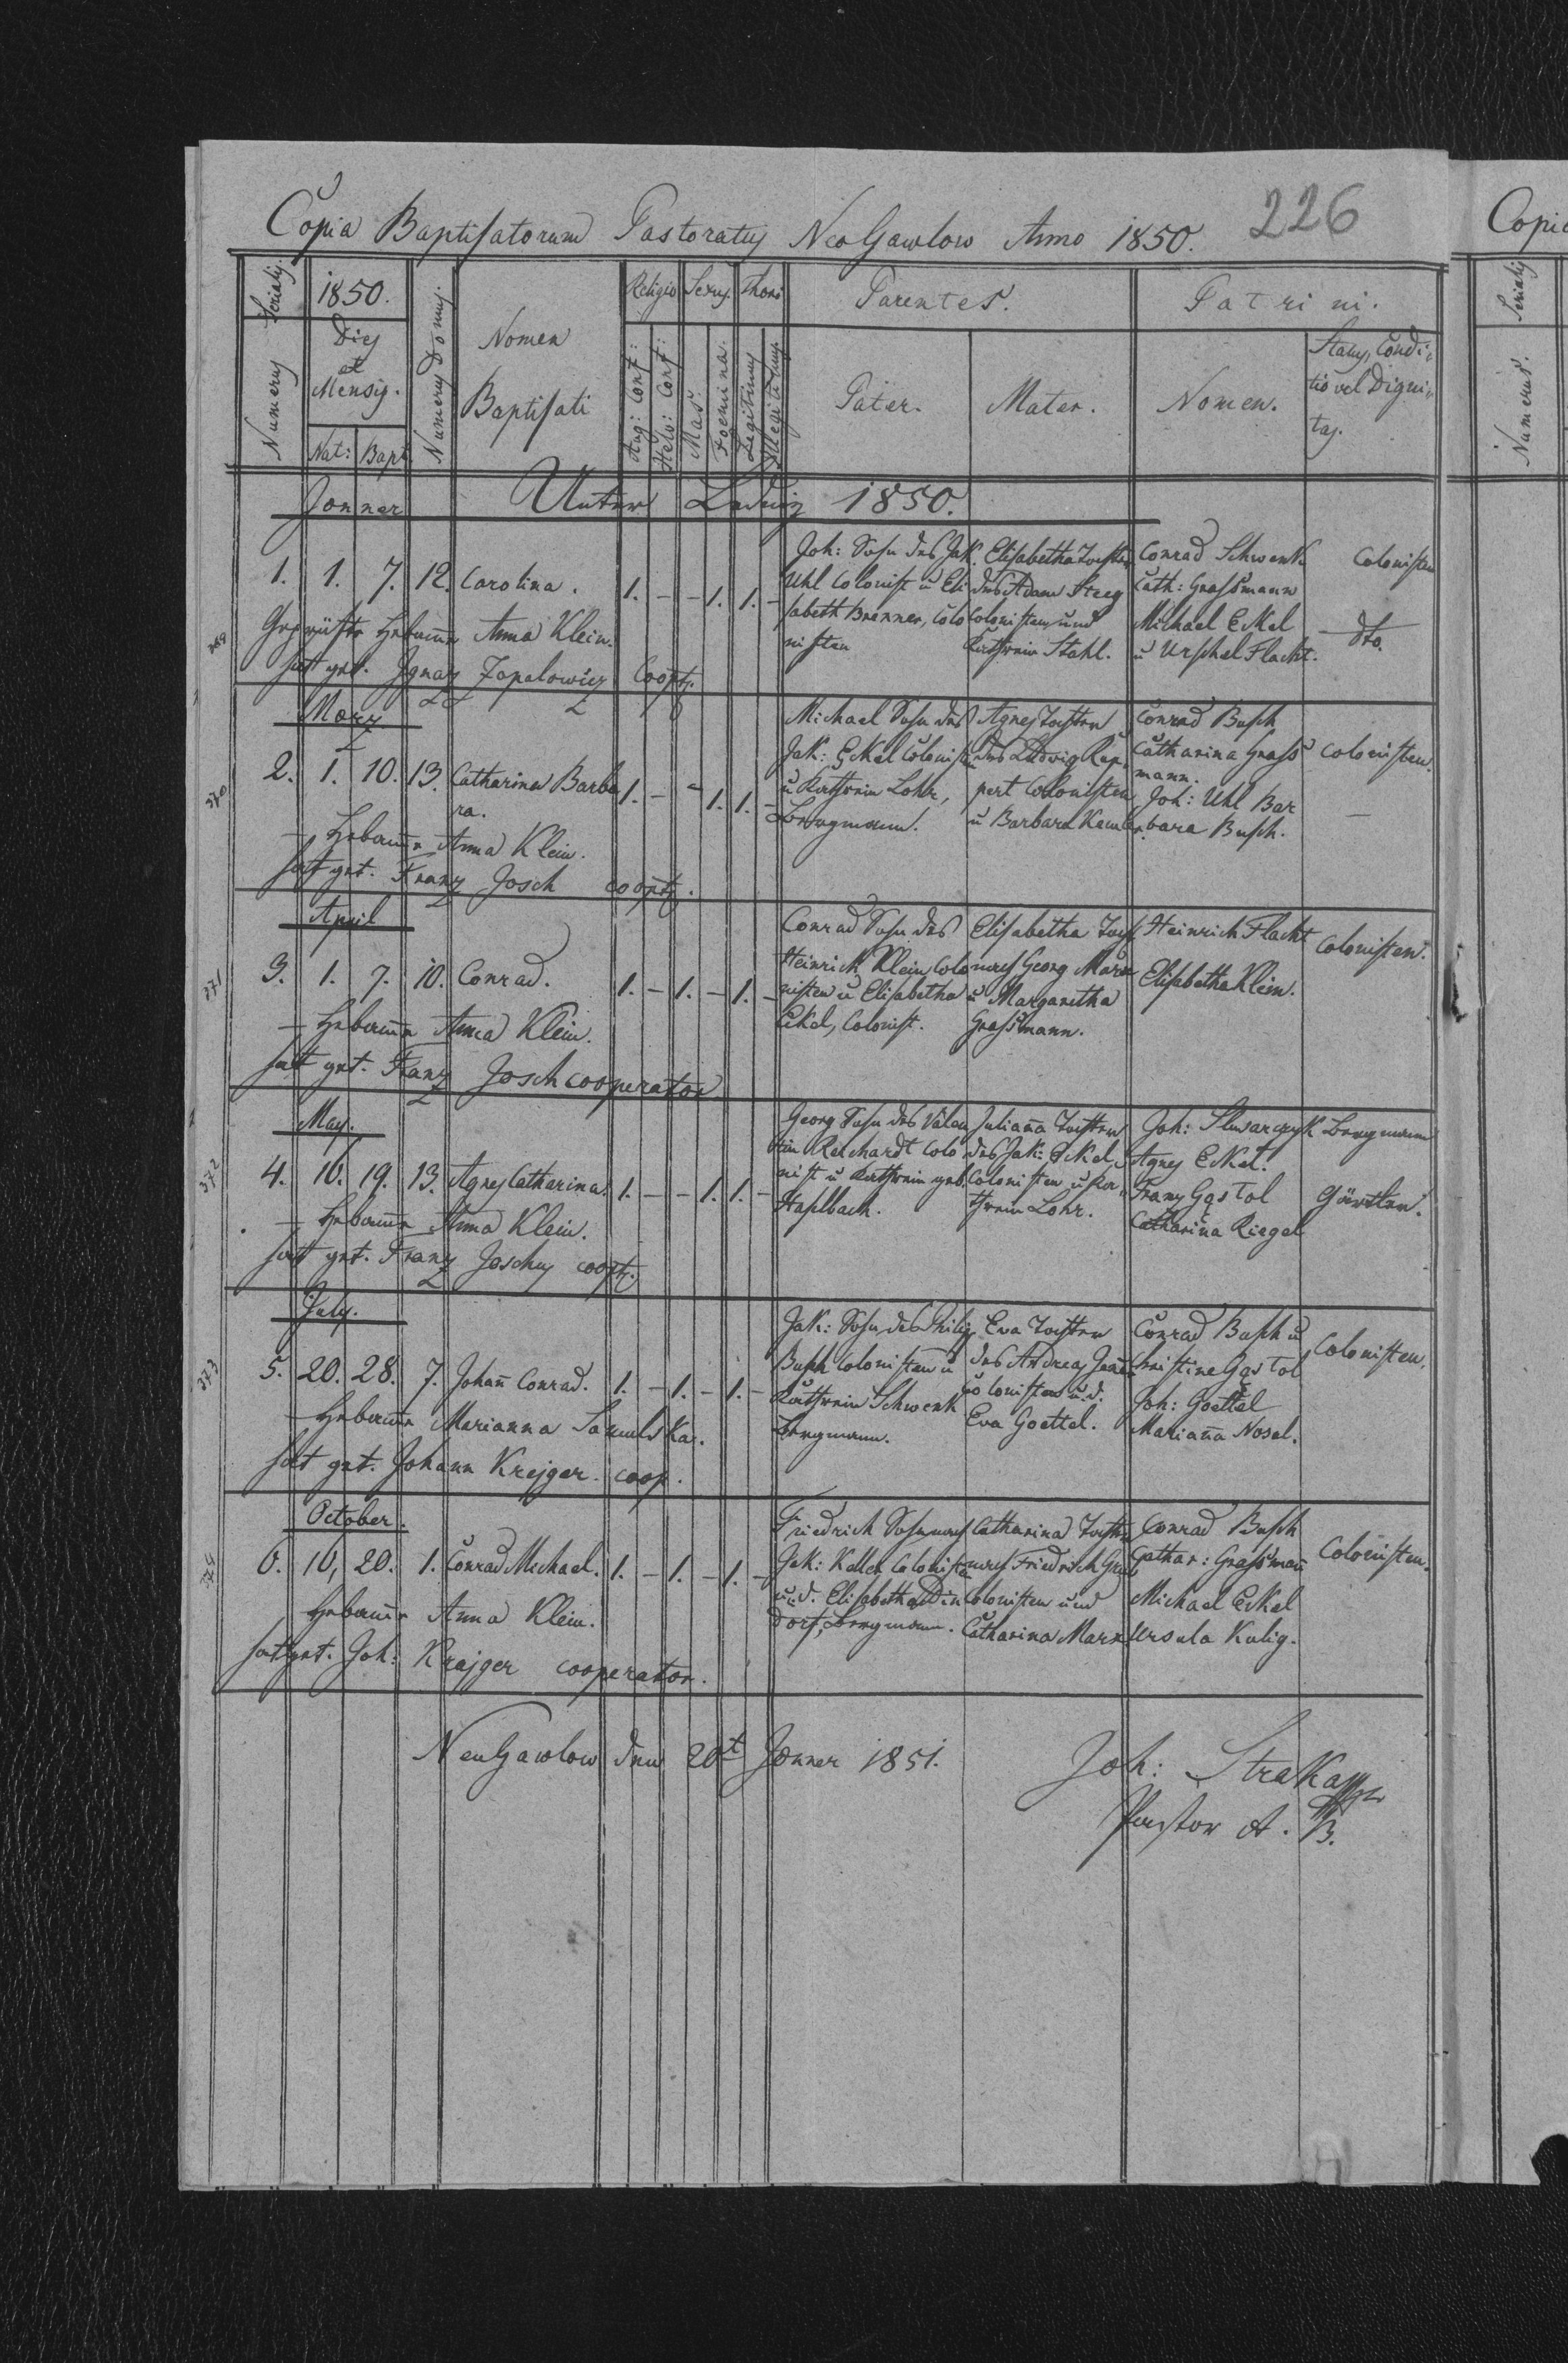 Copia Baptisatorum Pastoratus NeoGawlow Anno 1850. 226
Numerus Serialis.
1850.
Dies
et
Mensis.
Nat: Bapt.
Numerus Domus.
Nomen
Baptisati
Religio
Aug: Conf:
Helv: Conf:
Sexus.
Mas
Foemina.
Thori
Legitimus
Illegitimus
Parentes.
Pater.
Mater.
Patrini.
Nomen.
Status, Condi-
tio vel Digni-
tas.
Jonner Unter 1850.
1. 1. 7. 12. Carolina. 1. – – 1. 1. –
Joh: Sohn des Jak.
Uhl Colonist u Eli
sabeth Brenner, Colo
nisten
Elisabetha Tochter
des Adam Steeg
Colonisten und
Kathrein Stahl.
Conrad Schwenk
Cath: Grassmann
Michael Eckel
u Urschel Flacht.
Colonisten
dto.
369
Geprüfte Hebamme Anna Klein.
hat get. Ignaz Zopalowicz Coopr.
Merz
2. 1. 10. 13. Catharina Barba
ra.
1. – – 1. 1. –
Michael Sohn des
Jak: Eckel Colonisten
u Kathrein Lohr,
Bergmann.
Agnes Tochter
des Ludwig Rup
pert Colonisten
u Barbara Kamler.
Conrad Busch
Catharina Grass
mann.
Joh: Uhl Bar
bara Busch.
Colonisten.
–
370
– Hebamme Anna Klein.
hat get. Franz Josch coopr.
April
3. 1. 7. 10. Conrad. 1. – 1. – 1. –
Conrad Sohn des
Heinrich Klein, Colo
nisten u Elisabetha
Eckel, Colonist.
Elisabetha Toch
nach Georg Marx
u Margaretha
Grassmann.
Heinrich Flacht
Elisabetha Klein.
Colonisten.
371
– Hebamme Anna Klein.
hat get. Franz Josch cooperator
May.
4. 16. 19. 13. Agnes Catharina. 1. – – 1. 1. –
Georg Sohn des Valen
tin Reichardt Colo
nist u Kathrein geb.
Haslbach.
Julianna Tochter
des Jak: Eckel,
Colonisten u Ka
threin Lohr.
Joh: Slusarczyk
Agnes Eckel.
Franz Gąstol
Catharina Riegel
Bergmann
Gärtler.
372
– Hebamme Anna Klein.
hat get. Franz Joschy coopr.
July.
5. 20. 28. 7. Johann Conrad. 1. – 1. – 1. –
Jak: Sohn des Philip
Busch Colonisten u
Kathrein Schwenk
Bergmann.
Eva Tochter
des Andreas
Colonisten u. d.
Eva Goettel.
Conrad Busch u
Christine Gąstol
Joh: Goettel
Marianna Nosal.
Colonisten.
373
– Hebamme Marianna Samulska.
hat get. Johann Krejger coop.
October.
6. 16, 20. 1. Conrad Michael. 1. – 1. – 1. –
Friedrich Sohn nach
Jak: Keller Colonisten
u. d. Elisabetha Din
dorf, Bergmann.
Catharina Tochter
nach Friedrich
Colonisten und
Catharina Marx
Conrad Busch
Cathar: Grassmann
Michael Eckel
Ursula Kulig.
Colonisten.
Hebamme Anna Klein.
hat get. Joh: Krajger cooperator.
NeuGawlow den 20t Jonner 1851.
Joh: Straka
Pastor A. B.
Copia
Numerus.
Serialis